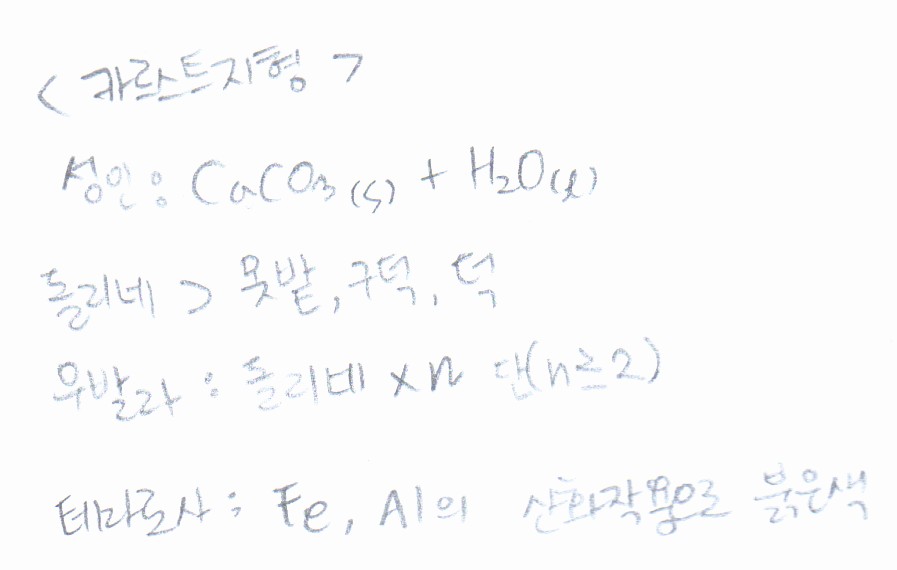 <카르스트지형>
성인: CaCO3(s) + H2O(l)
돌리네 > 못밭, 구덕, 덕
우발라 : 돌리네 ×n 단(n≥2)
테마로사 : Fe, Al의 산화작용으로 붉은색